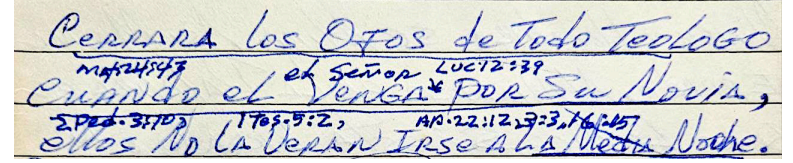 CERRARA los OJOS de Todo TeoLOGO
MAT.24:43 el Señor LUC.12:39
CUANDO eL VENGA* POR Su NOVIA,
2Ped.3:10, 1Tes.5:2, AP.22:12,3:3,16:15
ellos No LA VERAN IRSE A LA Media Noche.